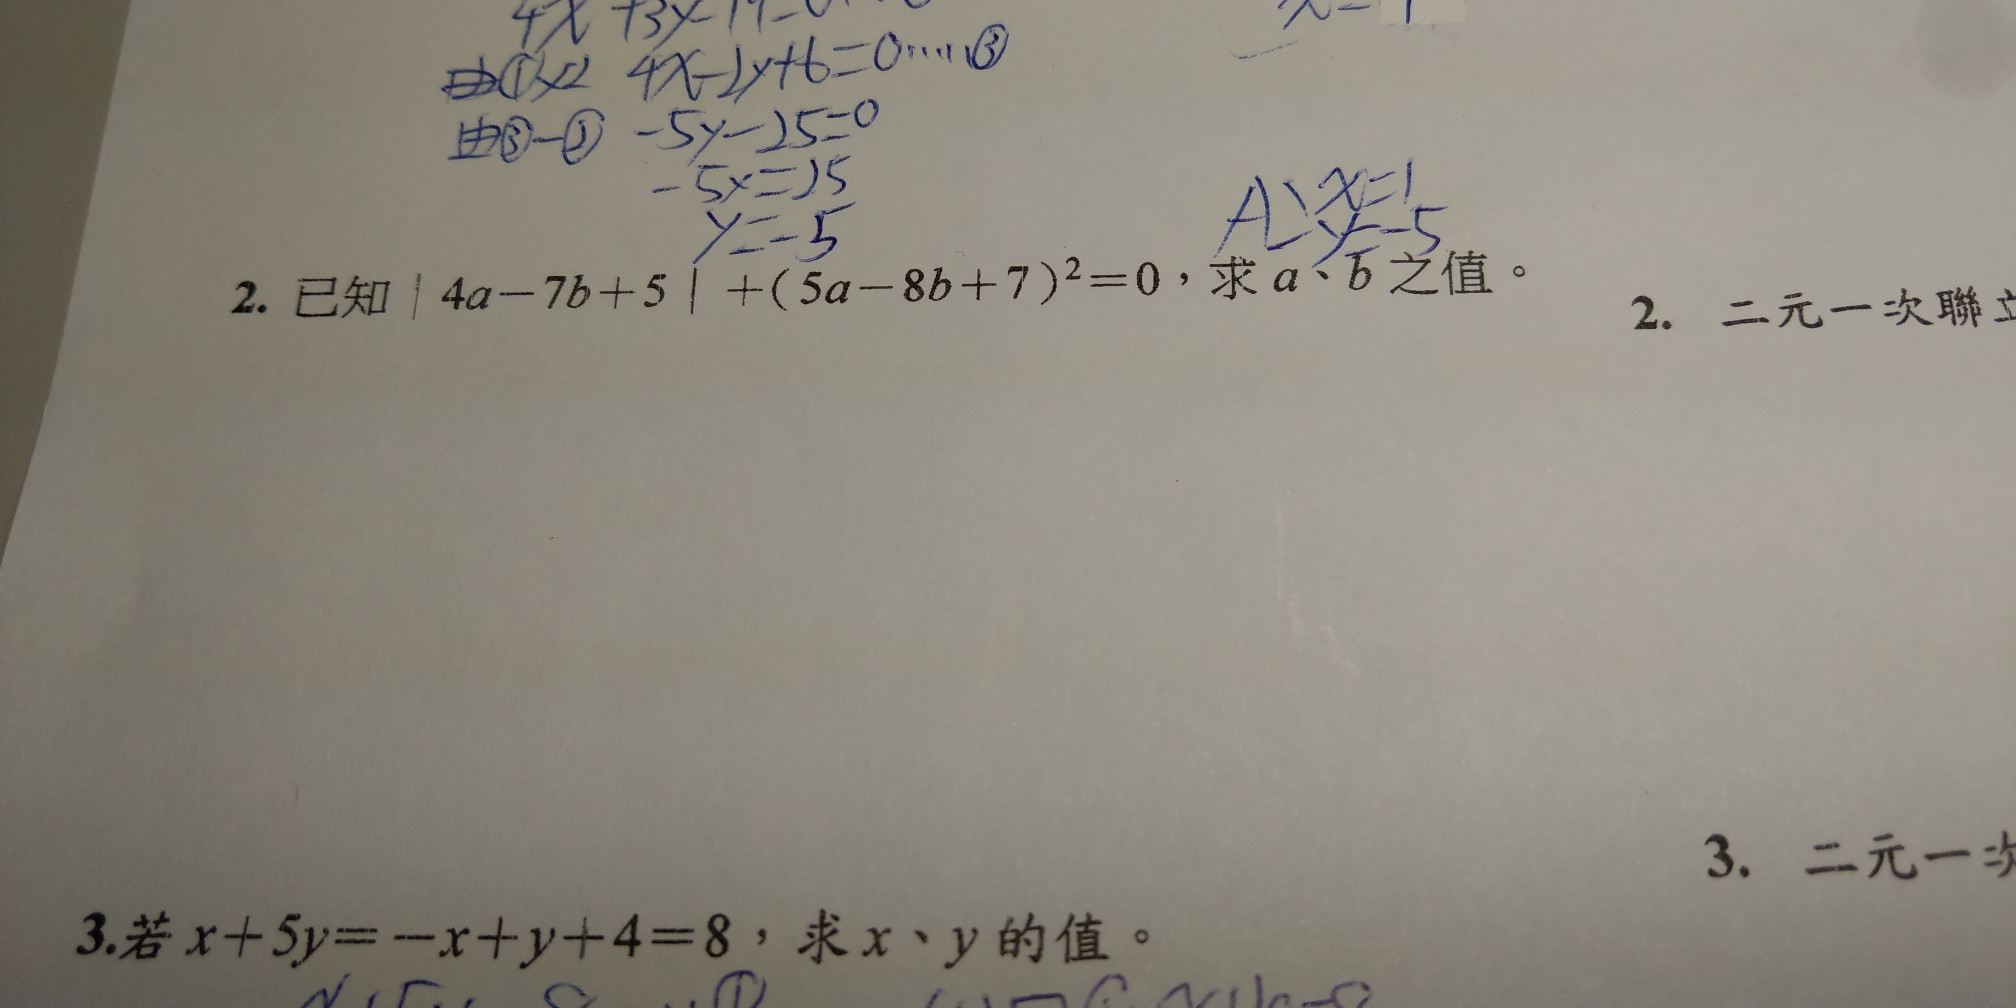 4x+3y-19=0
x=1
由①×2 4x-2y+6=0……③
由③-② -5y-25=0
-5y=25
y=-5
A: x=1
y=-5
2. 已知|4a-7b+5|+(5a-8b+7)²=0,求a、b之值。
2. 二元一次聯立
3. 二元一次
3.若x+5y=-x+y+4=8,求x、y的值。